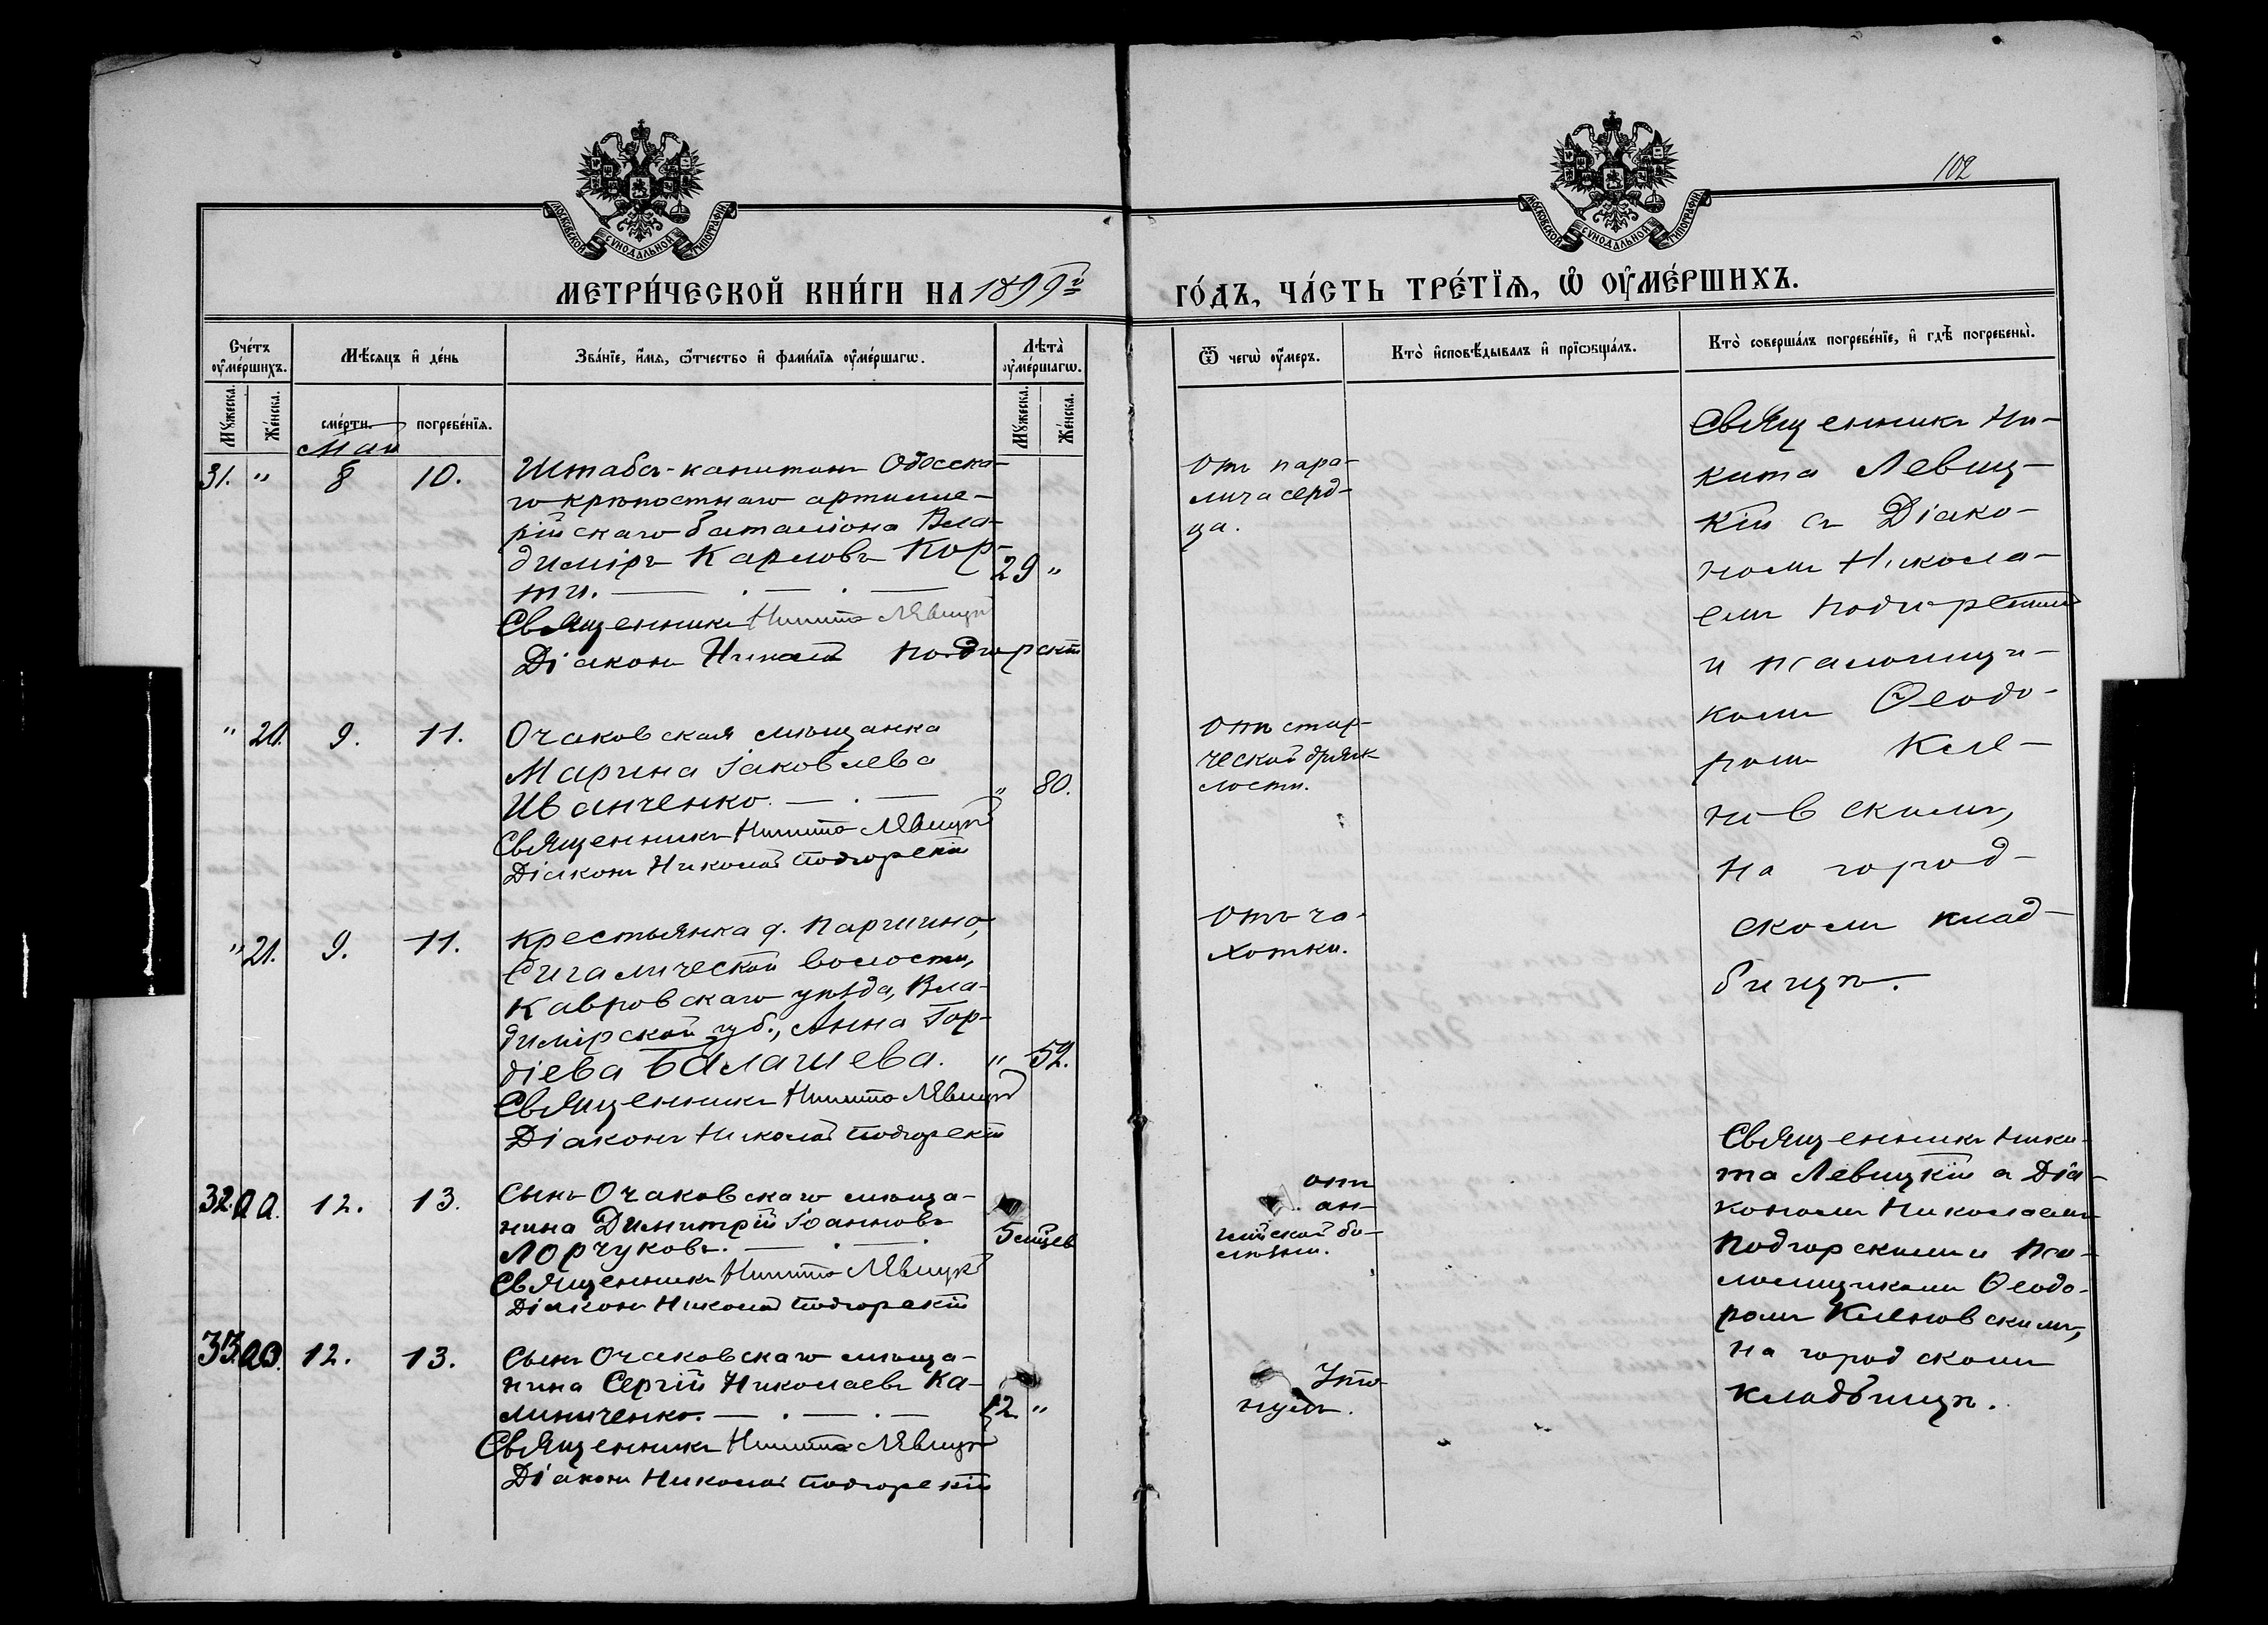 102
МОСКОВСКОЙ СѴНОДАЛЬНОЙ ТИПОГРАФІИ
МОСКОВСКОЙ СѴНОДАЛЬНОЙ ТИПОГРАФІИ
МЕТРИ́ЧЕСКОЙ КНИ́ГИ НА 1899й
ГО́ДЪ, ЧА́СТЬ ТРЕ́ТЇѦ, Ѽ ОУ҆МЕ́РШИХЪ.
Сче́тъ оу҆ме́ршихъ.
Мѣ́сяцъ и҆ де́нь
Зва́нїе, и҆́мѧ, ѻ҆́тчество и҆ фами́лїѧ оу҆ме́ршагѡ.
Лѣта̀ оу҆ме́ршагѡ.
Мꙋ́жеска.
Же́нска.
сме́рти.
погребе́нїѧ.
Мꙋ́жеска.
Же́нска.
Ѿ чегѡ̀ оу҆́меръ.
Кто̀ и҆сповѣ́дывалъ и҆ прїѡбща́лъ.
Кто̀ соверша́лъ погребе́нїе, и҆ гдѣ̀ погребены̀.
Мая
31. " 8 10.
Штабсъ-капитанъ Одесска-
го крѣпостнаго артилле-
рійскаго баталіона Вла-
диміръ Карловъ Кор-
ти. 29 "
Священникъ Никита Левицкій
Діаконъ Николай Подгорскій
Отъ пара-
лича серд-
ца.
Священникъ Ни-
кита Левиц-
кій съ Діако-
номъ Никола-
емъ Подгорскимъ
и псаломщи-
комъ Ѳеодо-
ромъ Кле-
новскимъ,
на город-
скомъ клад-
бищѣ.
" 20. 9. 11.
Очаковская мѣщанка
Марина Іаковлева
Иванченко. " 80.
Священникъ Никита Левицкій
Діаконъ Николай Подгорскій
Отъ стар-
ческой дрях-
лости.
" 21. 9. 11.
Крестьянка д.
волости,
Кавровскаго уѣзда, Вла-
димірской губ., Анна Гор-
діева Балашева. " 52.
Священникъ Никита Левицкій
Діаконъ Николай Подгорскій
Отъ ча-
хотки.
32. 12. 13.
Сынъ Очаковскаго мѣща-
нина Димитрій Іоанновъ
Лорчуковъ. 5 мѣцев
Священникъ Никита Левицкій
Діаконъ Николай Подгорскій
отъ
ан-
глійской бо-
лѣзни.
Священникъ Ники-
та Левицкій съ Діа-
кономъ Николаемъ
Подгорскимъ и пса-
ломщикомъ Ѳеодо-
ромъ Кленовскимъ,
на городскомъ
кладбищѣ.
33. 12. 13.
Сынъ Очаковскаго мѣща-
нина Сергій Николаевъ Ка-
линиченко. 12. "
Священникъ Никита Левицкій
Діаконъ Николай Подгорскій
Уто-
нулъ.